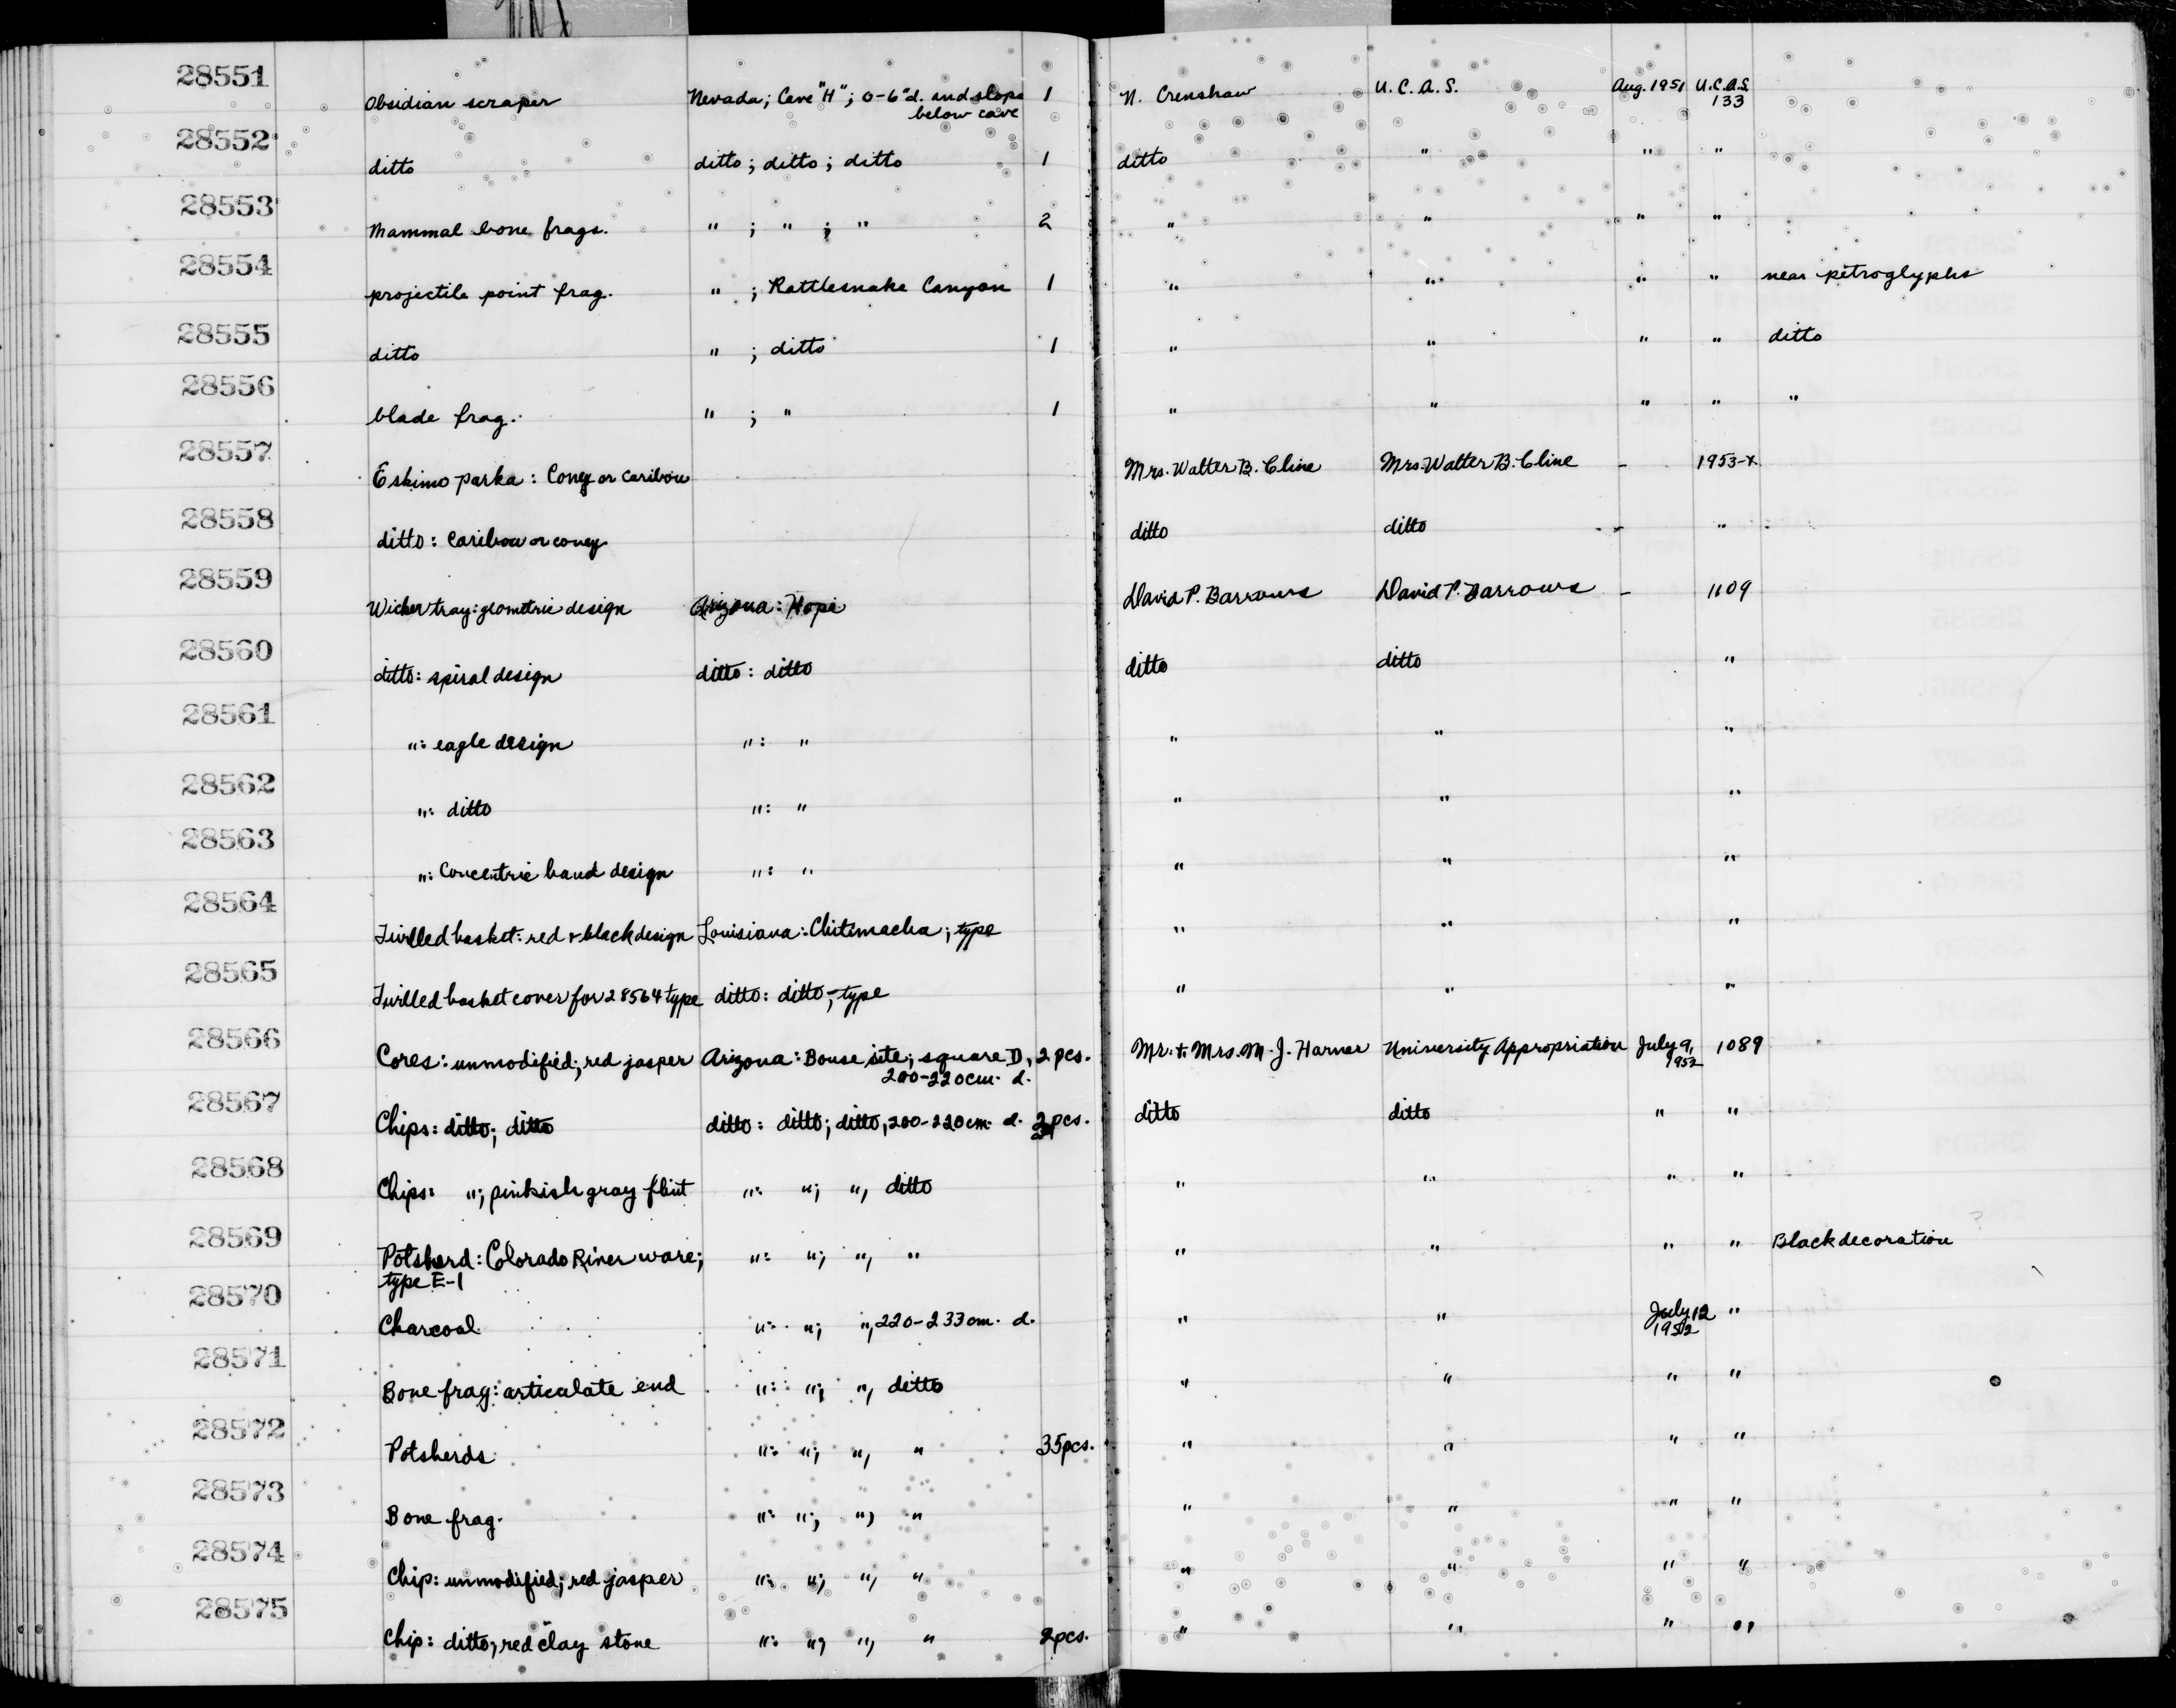 28551 Obsidian scraper Nevada; Cave "H"; 0-6"d. and slope 1 N. Crenshaw U.C.A.S. Aug. 1951 U.C.A.S.
below cave 133
28552 ditto ditto; ditto; ditto 1 ditto " " "
28553 Mammal bone frags. " ; " ; " 2 " " " "
28554 projectile point frag. " ; Rattlesnake Canyon 1 " " " " near petroglyphs
28555 ditto " ; ditto 1 " " " " ditto
28556 blade frag. " ; " 1 " " " " "
28557 Eskimo parka: Coney or caribou Mrs. Walter B. Cline Mrs. Walter B. Cline - 1953-X
28558 ditto: Caribou or coney ditto ditto - "
28559 Wicker tray: geometric design Arizona: Hopi David P. Barrows David P. Barrows - 1109
28560 ditto: spiral design ditto: ditto ditto ditto "
28561 ": eagle design ": " " " "
28562 ": ditto ": " " " "
28563 ": Concentric band design ": " " " "
28564 Twilled basket: red + black design Louisiana: Chitimacha; type " " "
28565 Twilled basket cover for 28564 type ditto: ditto; type " " "
28566 Cores: unmodified; red jasper Arizona: Bouse site; square D, 2 pcs. Mr. + Mrs. M. J. Harner University Appropriation July 9, 1089
200-220 cm. d. 1952
28567 Chips: ditto; ditto ditto: ditto; ditto, 200-220 cm. d. pcs. ditto ditto " "
28568 Chips: "; pinkish gray flint ": "; ", ditto " " " "
28569 Potsherd: Colorado River ware; ": "; ", " " " " " Black decoration ?
type E-1
28570 Charcoal ": "; ", 220-233 cm. d. " " July 12 "
1952
28571 Bone frag: articulate end ": "; ", ditto " " " "
28572 Potsherds ": "; ", " 35 pcs. " " " "
28573 Bone frag. ": "; ", " " " " "
28574 Chip: unmodified; red jasper ": "; ", " " " " "
28575 Chip: ditto; red clay stone ": "; ", " 2 pcs. " " " "